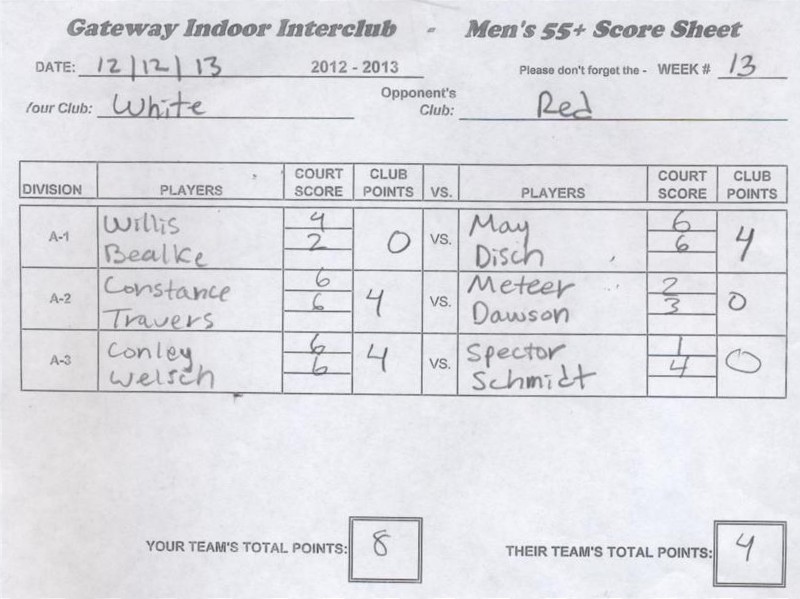 Gateway Indoor Interclub - Men's 55+ Score Sheet
DATE: 12/12/13 2012 - 2013 Please don't forget the - WEEK # 13
Your Club: White Opponent's Club: Red
DIVISION PLAYERS COURT SCORE CLUB POINTS VS. PLAYERS COURT SCORE CLUB POINTS
A-1 Willis 4 0 VS. May 6 4
Bealke 2 Disch 6
A-2 Constance 6 4 VS. Meteer 2 0
Travers 6 Dawson 3
A-3 Conley 6 4 VS. Spector 1 0
Welsch 6 Schmidt 4
YOUR TEAM'S TOTAL POINTS: 8 THEIR TEAM'S TOTAL POINTS: 4